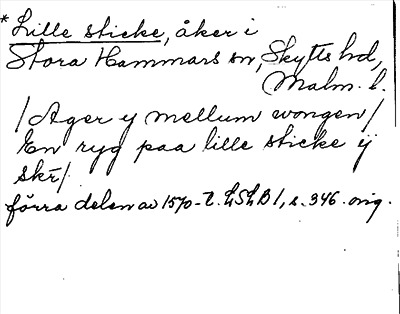 * Lille sticke, åker i
Stora Hammars sn, Skytts hd,
Malm. l.
/Ager y mellum wongen/
En ryg paa lille sticke ÿ
skr/
förra delen av 1570-t. LSLB 1, s. 346. orig.